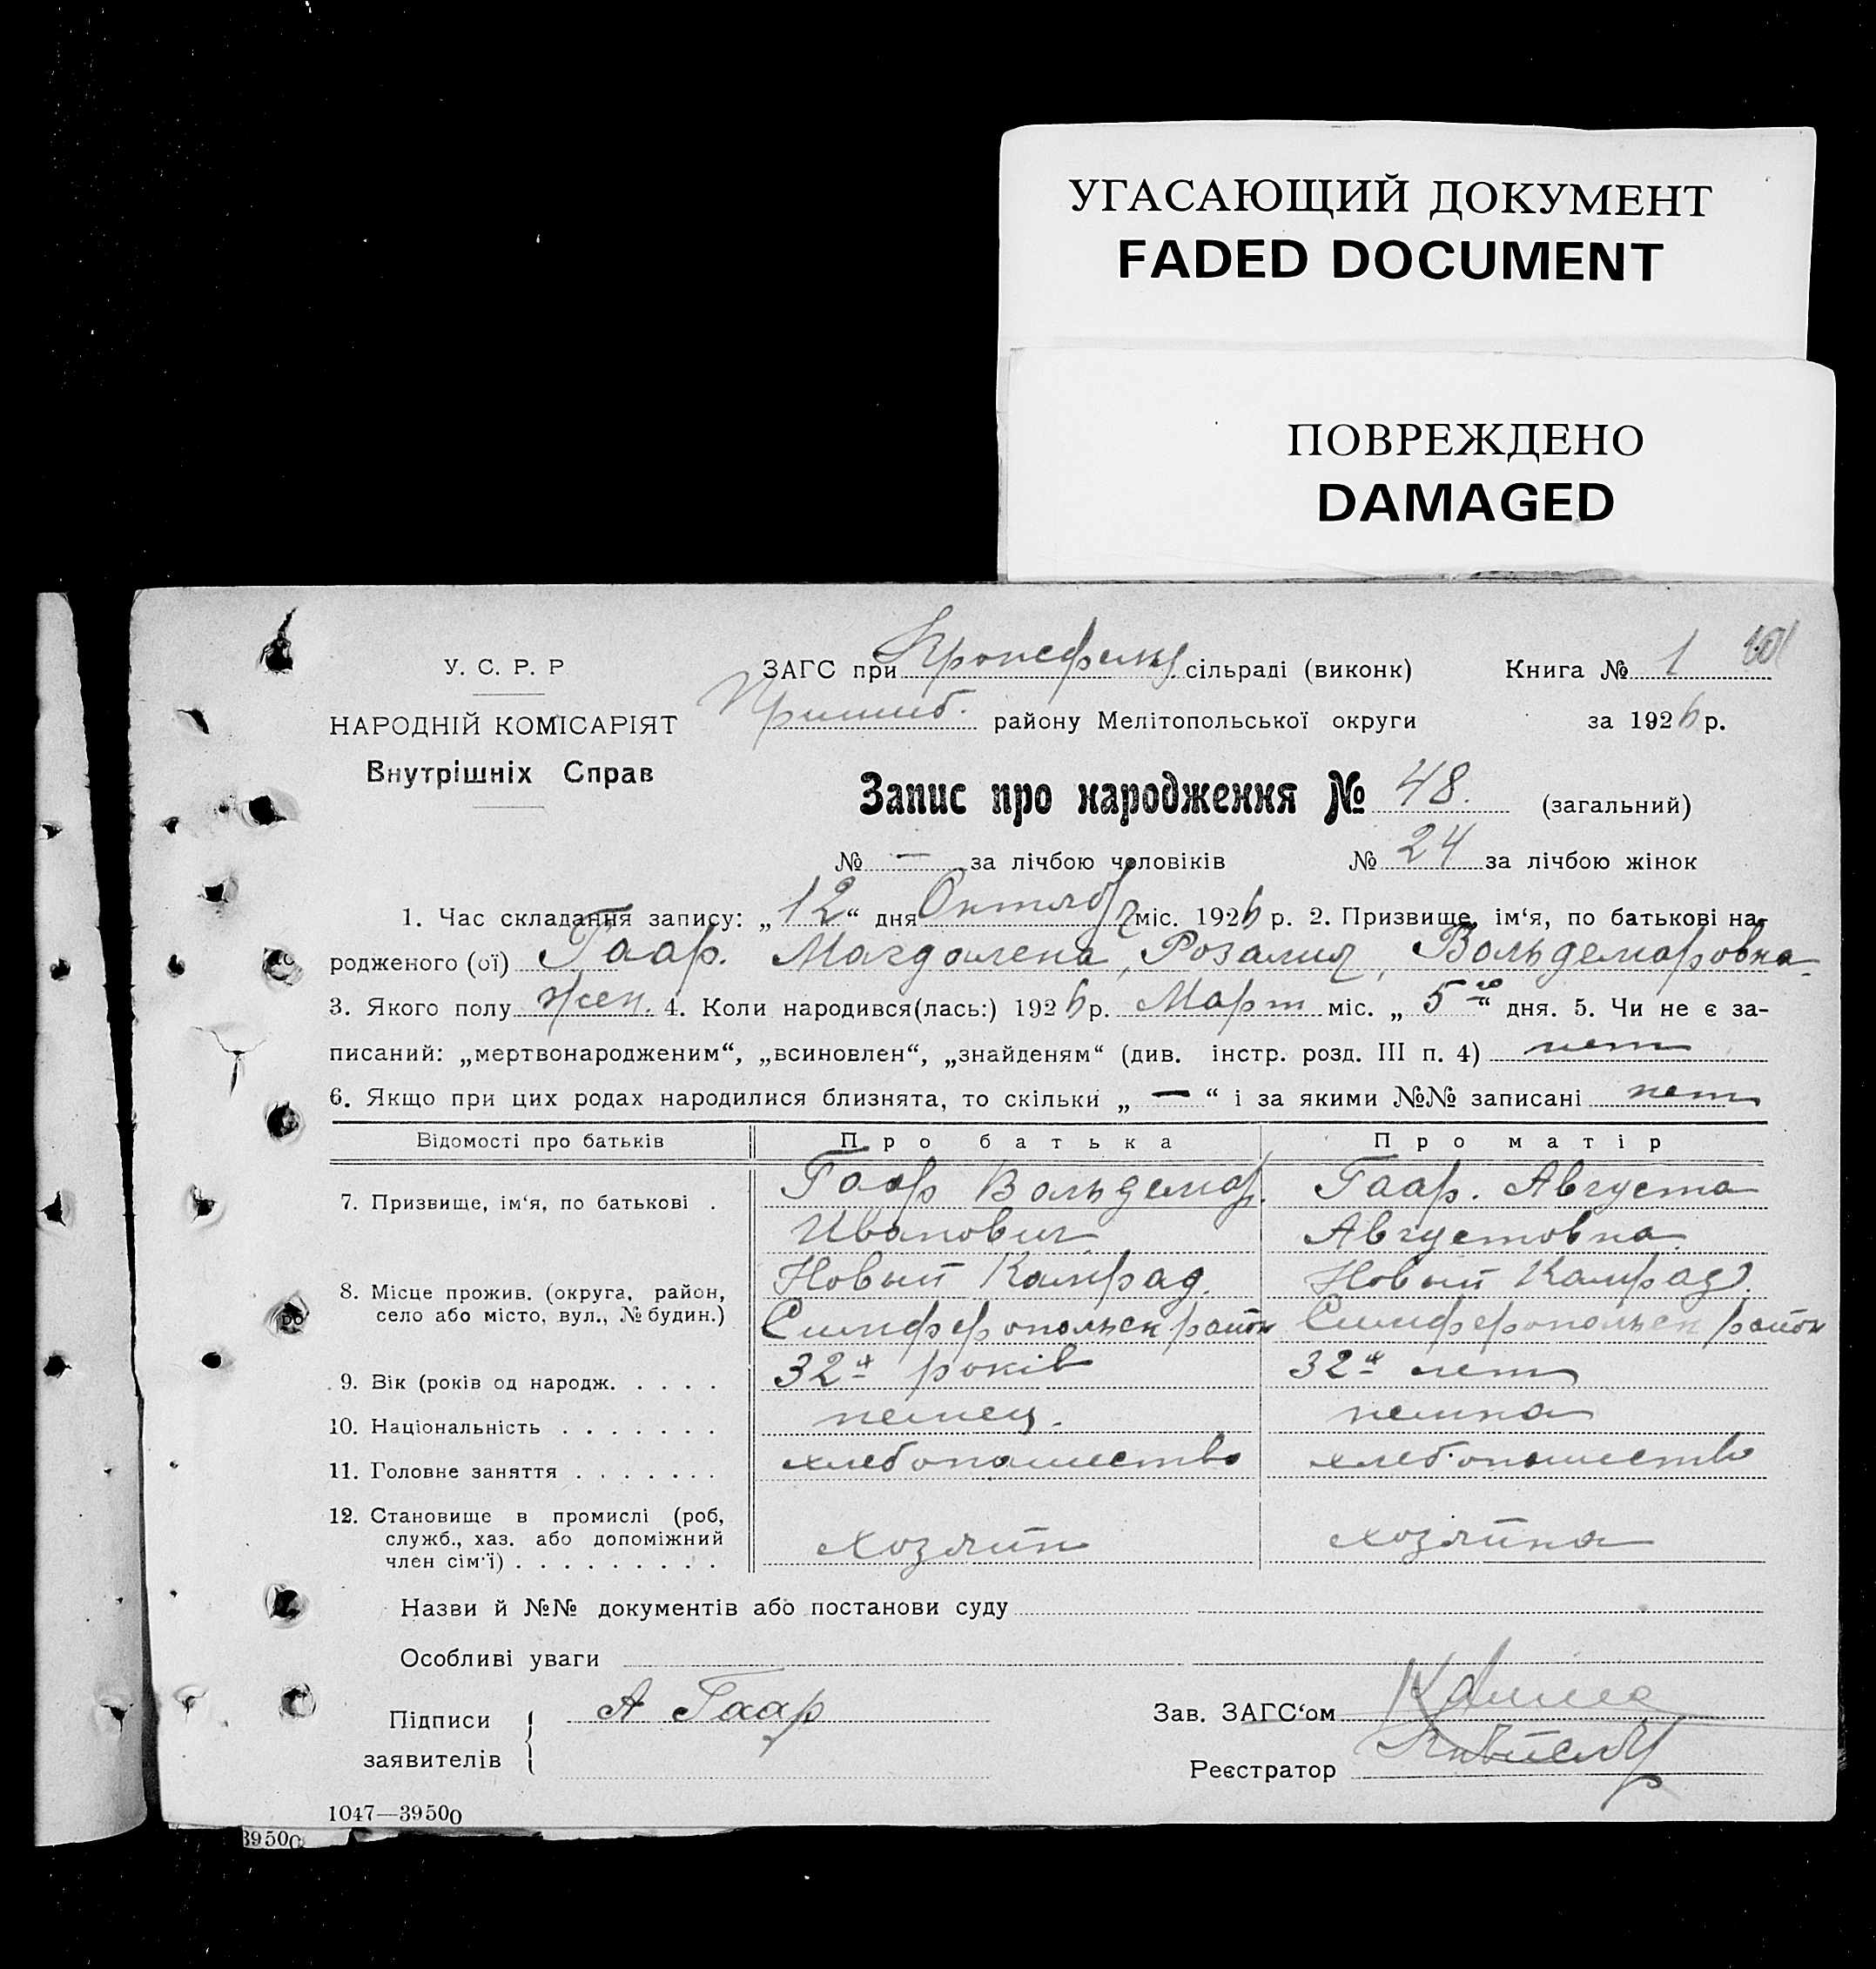 УГАСАЮЩИЙ ДОКУМЕНТ
FADED DOCUMENT
ПОВРЕЖДЕНО
DAMAGED
У. С. Р. Р
НАРОДНІЙ КОМІСАРІЯТ
Внутрішніх Справ
ЗАГС при сільраді (виконк) Книга № 1 101
Пришиб. району Мелітопольської округи за 1926 р.
Запис про народження № 48. (загальний)
№ — за лічбою чоловіків № 24 за лічбою жінок
1. Час складання запису: „12“ дня Октябр міс. 1926 р. 2. Призвище, ім‘я, по батькові на-
родженого (ої) Гаар. Магдалена, Розалия, Вольдемаровна
3. Якого полу жен. 4. Коли народився(лась:) 1926 р. Март міс. „5го“ дня. 5. Чи не є за-
писаний: „мертвонародженим“, „всиновлен“, „знайденям“ (див. інстр. розд. III п. 4) нет
6. Якщо при цих родах народилися близнята, то скільки „—“ і за якими №№ записані нет
Відомості про батьків Про батька Про матір
7. Призвище, ім‘я, по батькові . Гаар Вольдемар. Гаар. Августа
Иванович Августовна
8. Місце прожив. (округа, район, село або місто, вул., № будин.) Новый Камрад. Новый Камрад.
Симфферопольск район Симфферопольск район
9. Вік (років од народж. . . . . 32х років 32х лет
10. Національність . . . . . . . немец. немка
11. Головне заняття . . . . . . . хлебопашество хлебопашество
12. Становище в промислі (роб, служб., хаз. або допоміжний член сім‘ї) . . . . . . . . . хозяйн хозяйка
Назви й №№ документів або постанови суду
Особливі уваги
Підписи заявителів А Гаар
Зав. ЗАГС‘ом
Реєстратор
1047—39500
39500